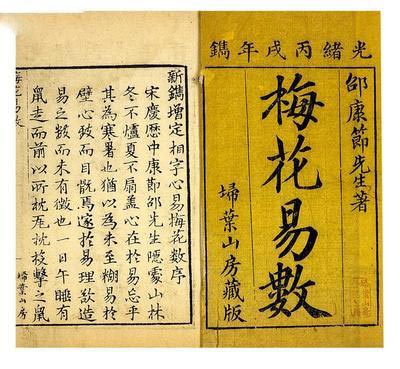 光緒丙戌年鐫
邵康節先生著
梅花易數
埽葉山房藏版
新鐫增定相字心易梅花數序
宋慶歷中康節邵先生隱處山林
冬不爐夏不扇蓋心在於易忘乎
其為寒暑也猶以為未至糊易於
壁心致而目翫焉邃於易理欲造
易之數而未有徵也一日午睡有
鼠走而前以所枕瓦枕投擊之鼠
梅花易數
埽葉山房